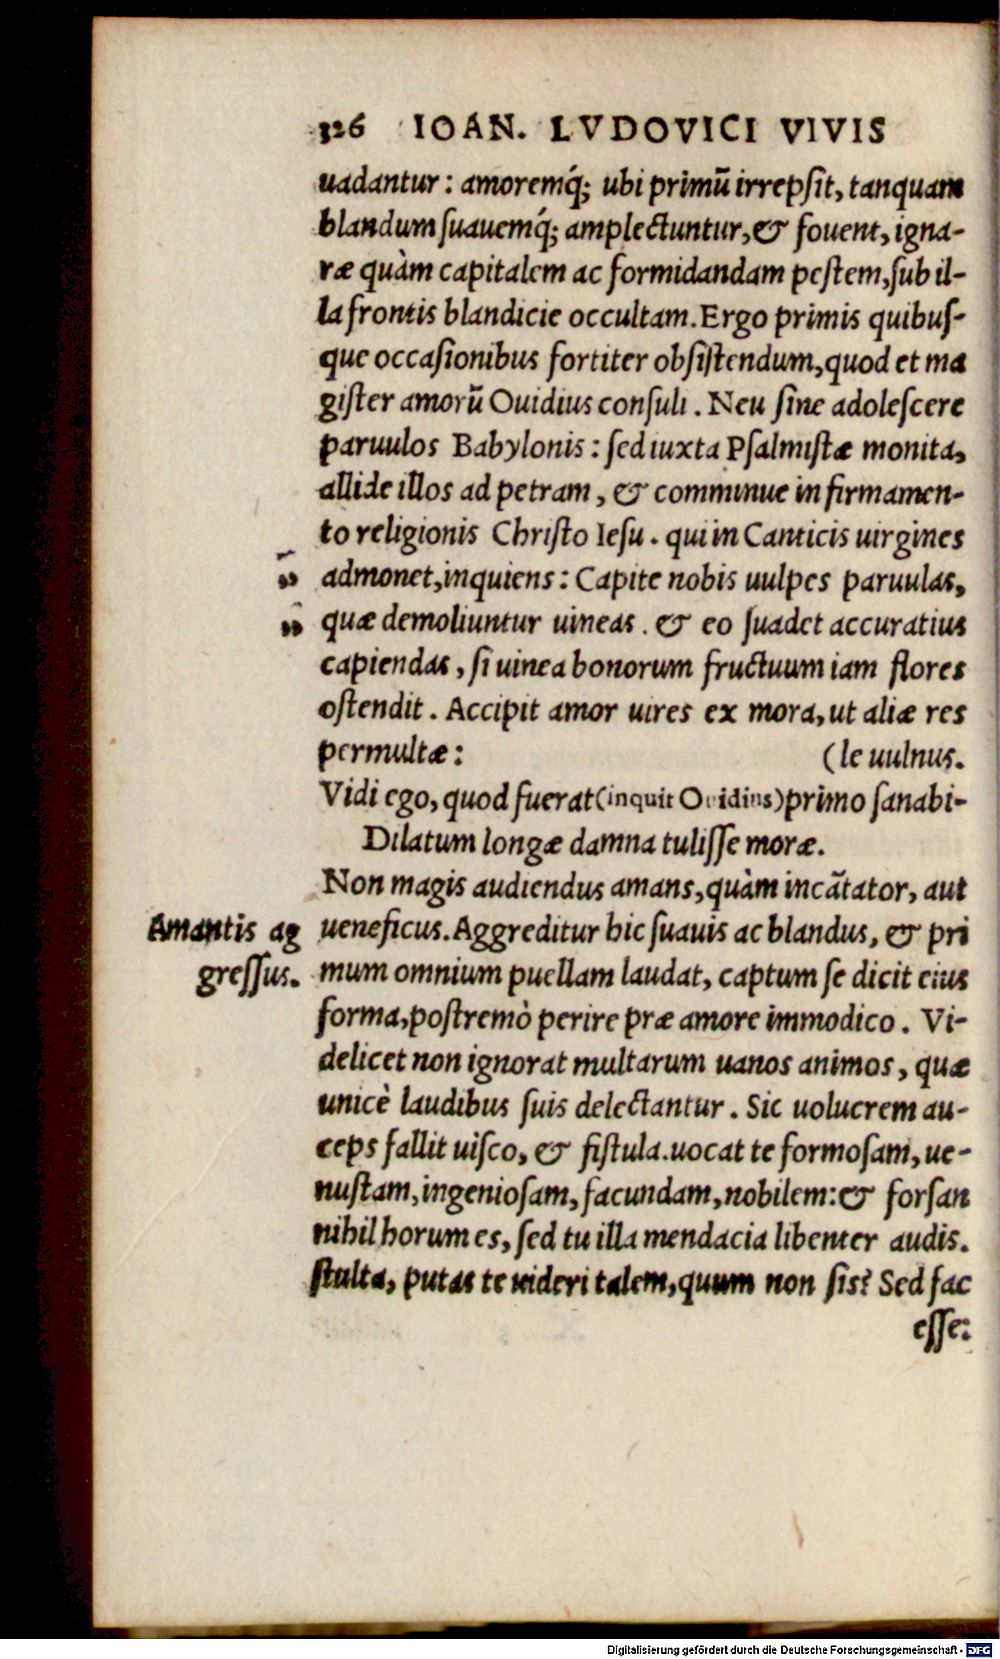 326 IOAN. LVDOVICI VIVIS
uadantur: amoremq́; ubi primũ irrepſit, tanquam
blandum ſuauemq́; amplectuntur, & fouent, igna-
ræ quàm capitalem ac formidandam peſtem, ſub il-
la frontis blandicie occultam. Ergo primis quibuſ-
que occaſionibus fortiter obſiſtendum, quod et ma
giſter amorũ Ouidius conſuli. Neu ſine adoleſcere
paruulos Babylonis: ſed iuxta Pſalmiſtæ monita,
allide illos ad petram, & comminue in firmamen-
to religionis Chriſto Ieſu. qui in Canticis uirgines
admonet, inquiens: Capite nobis uulpes paruulas,
quæ demoliuntur uineas. & eo ſuadet accuratius
capiendas, ſi uinea bonorum fructuum iam flores
oſtendit. Accipit amor uires ex mora, ut aliæ res
permultæ: (le uulnus.
Vidi ego, quod fuerat (inquit Ouidius) primo ſanabi-
Dilatum longæ damna tuliſſe moræ.
Non magis audiendus amans, quàm incãtator, aut
Amantis ag
greſſus.
ueneficus. Aggreditur hic ſuauis ac blandus, & pri
mum omnium puellam laudat, captum ſe dicit eius
forma, poſtremò perire præ amore immodico. Vi-
delicet non ignorat multarum uanos animos, quæ
unicè laudibus ſuis delectantur. Sic uolucrem au-
ceps fallit uiſco, & fiſtula. uocat te formoſam, ue-
nuſtam, ingenioſam, facundam, nobilem: & forſan
nihil horum es, ſed tu illa mendacia libenter audis.
ſtulta, putas te uideri talem, quum non ſis? Sed fac
eſſe:
Digitalisierung gefördert durch die Deutsche Forschungsgemeinschaft - DFG